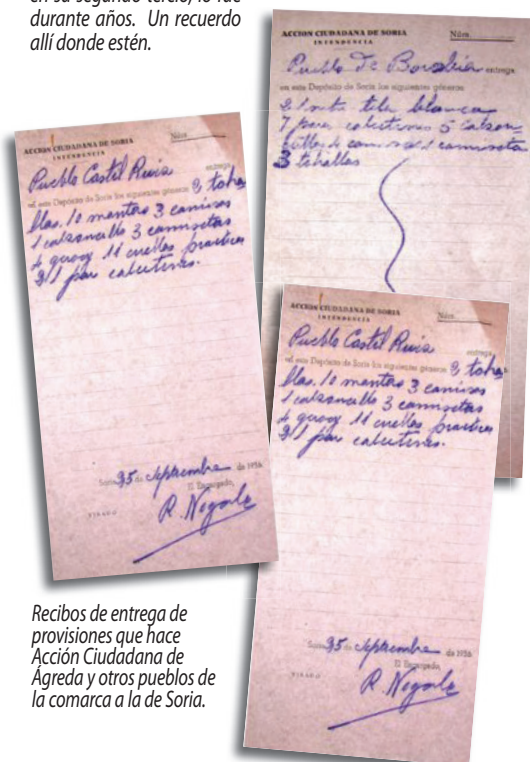 en su segundo tercio, lo fue
durante años. Un recuerdo
allí donde estén.
ACCION CIUDADANA DE SORIA
INTENDENCIA
Núm.
Pueblo De Borobia entrega
en este Depósito de Soria los siguientes géneros
tela blanca
7 pares calcetines 5 calzon-
cillos 4 camisas 1 camiseta
3 tohallas
ACCION CIUDADANA DE SORIA
INTENDENCIA
Núm.
Pueblo Castil Ruiz entrega
en este Depósito de Soria los siguientes géneros 8 toha
llas. 10 mantas 3 camisas
1 calzoncillo 3 camisetas
11 cuellos
31 par calcetines.
Soria 25 de Septiembre de 1936
El Encargado,
R.
ACCION CIUDADANA DE SORIA
INTENDENCIA
Núm.
Pueblo Castil Ruiz entrega
en este Depósito de Soria los siguientes géneros 8 toha
llas. 10 mantas 3 camisas
1 calzoncillo 3 camisetas
11 cuellos
31 par calcetines.
Soria 25 de Septiembre de 1936
El Encargado,
R.
Recibos de entrega de
provisiones que hace
Acción Ciudadana de
Ágreda y otros pueblos de
la comarca a la de Soria.